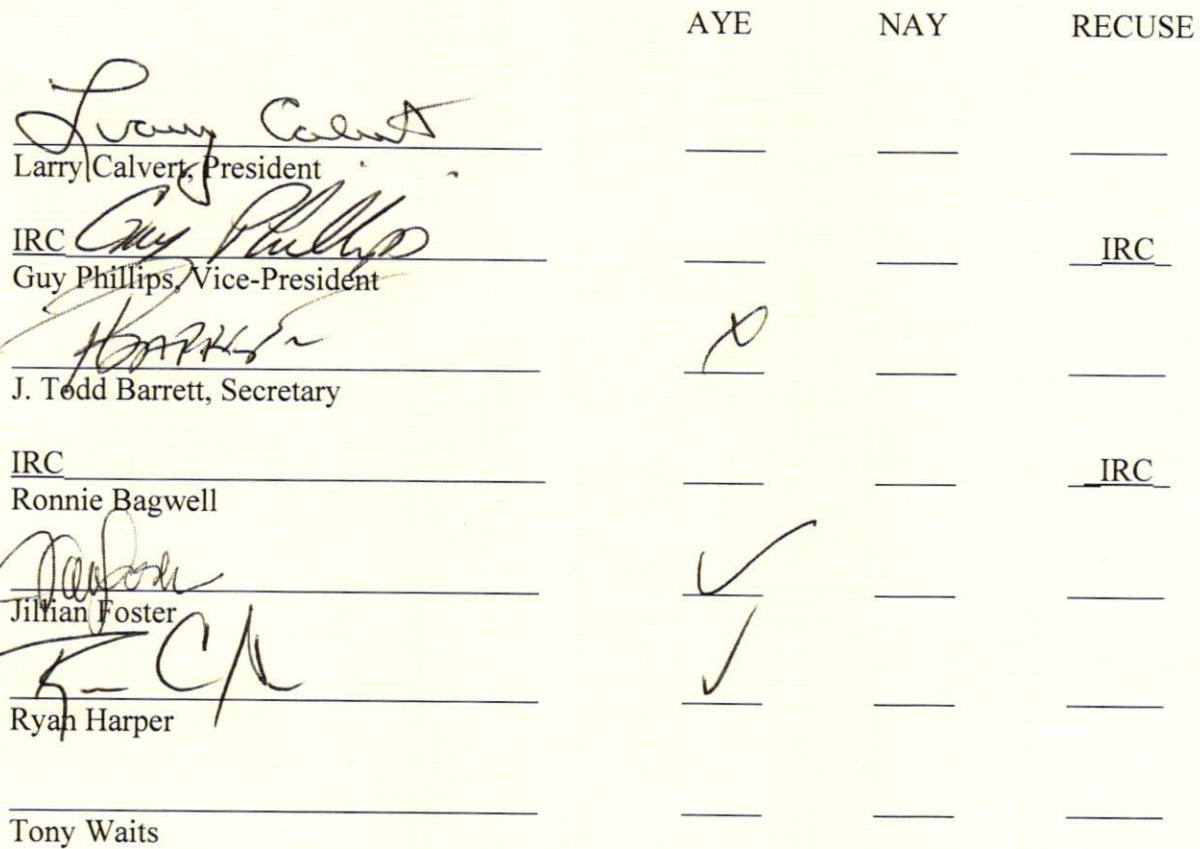 AYE NAY RECUSE
Larry Calvert
Larry Calvert, President
IRC Guy Phillips IRC
Guy Phillips, Vice-President
X
J. Todd Barrett, Secretary
IRC IRC
Ronnie Bagwell
✓
Jillian Foster
✓
Ryan Harper
Tony Waits